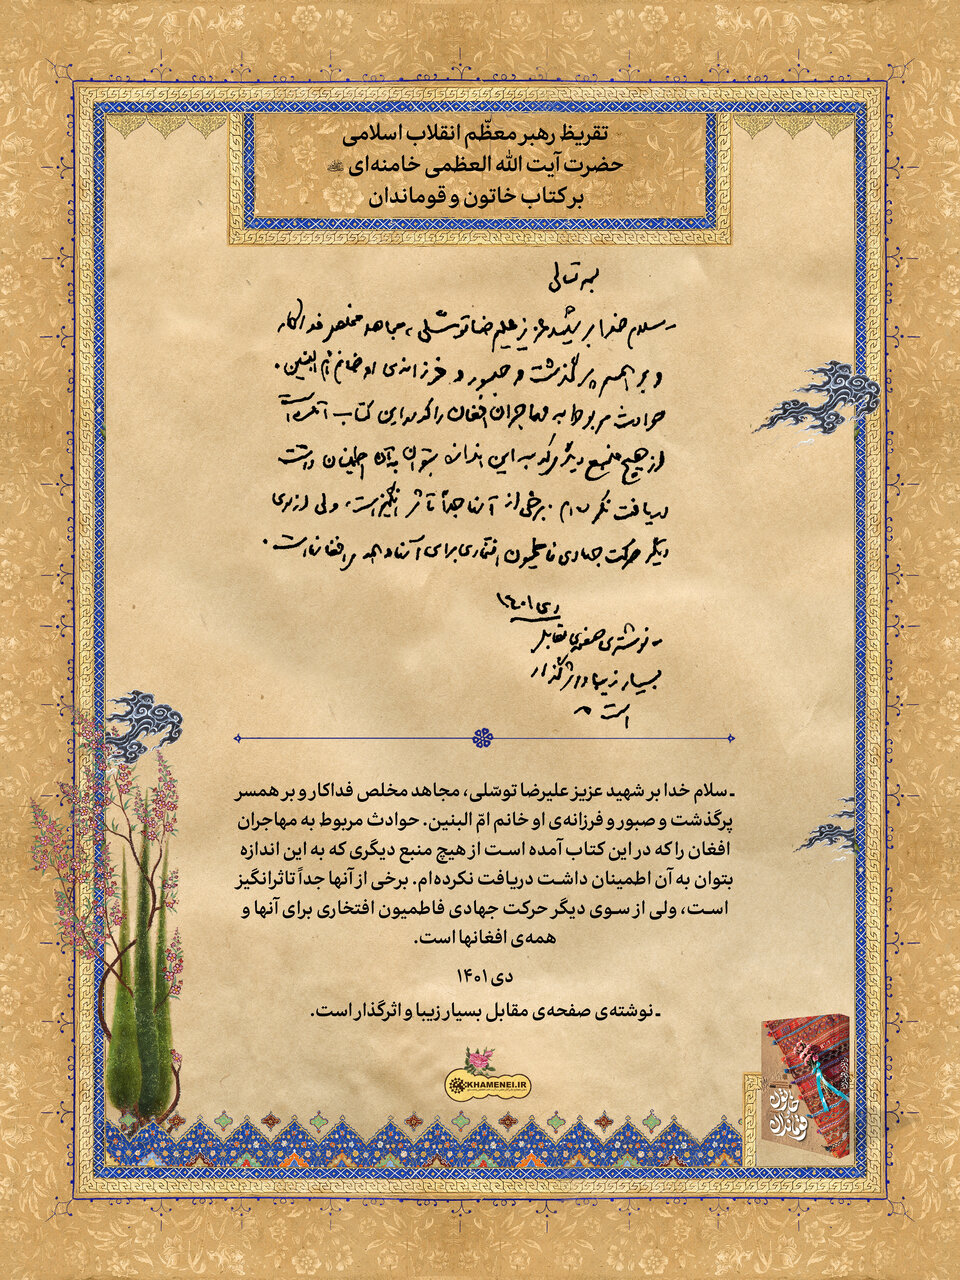 تقریظ رهبر معظّم انقلاب اسلامی
حضرت آیت الله العظمی خامنه‌ای
بر کتاب خاتون و قوماندان
بسمه تعالی
ـ سلام خدا بر شهید عزیز علیرضا توسّلی، مجاهد مخلص فداکار
و بر همسر پرگذشت و صبور و فرزانه‌ی او خانم امّ البنین.
حوادث مربوط به مهاجران افغان را که در این کتاب آمده است
از هیچ منبع دیگری که به این اندازه بتوان به آن اطمینان داشت
دریافت نکرده‌ام. برخی از آنها جداً تاثرانگیز است، ولی از سوی
دیگر حرکت جهادی فاطمیون افتخاری برای آنها و همه‌ی افغانها است.
دی ۱۴۰۱
ـ نوشته‌ی صفحه‌ی مقابل
بسیار زیبا و اثرگذار
است
ـ سلام خدا بر شهید عزیز علیرضا توسّلی، مجاهد مخلص فداکار و بر همسر
پرگذشت و صبور و فرزانه‌ی او خانم امّ البنین. حوادث مربوط به مهاجران
افغان را که در این کتاب آمده است از هیچ منبع دیگری که به این اندازه
بتوان به آن اطمینان داشت دریافت نکرده‌ام. برخی از آنها جداً تاثرانگیز
است، ولی از سوی دیگر حرکت جهادی فاطمیون افتخاری برای آنها و
همه‌ی افغانها است.
دی ۱۴۰۱
ـ نوشته‌ی صفحه‌ی مقابل بسیار زیبا و اثرگذار است.
KHAMENEI.IR
خاتون
و قوماندان